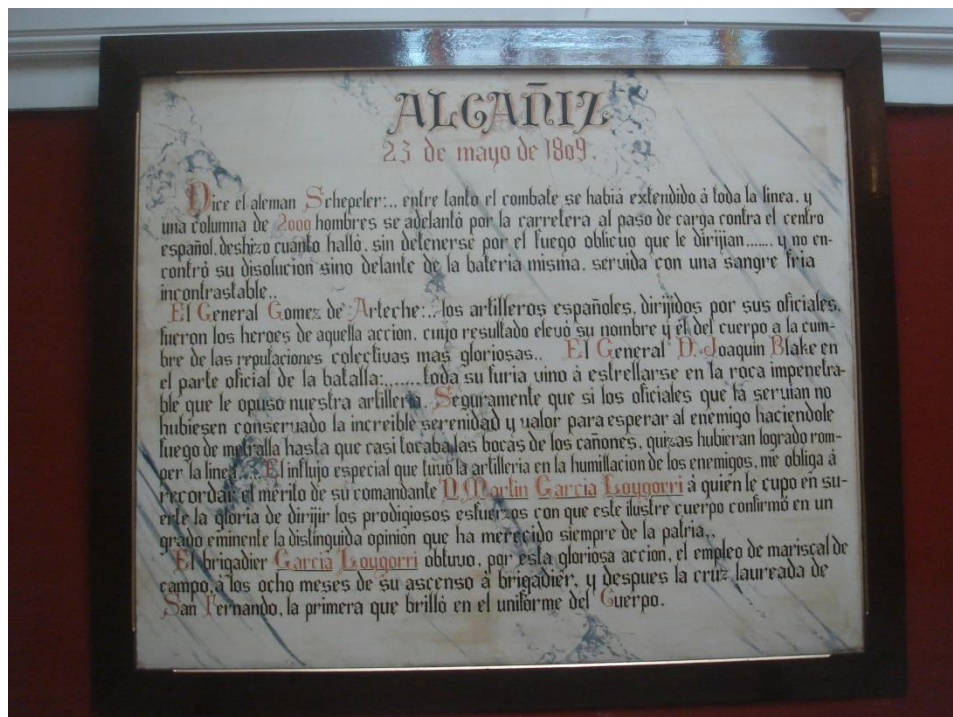 ALCAÑIZ
23 de mayo de 1809.
Dice el aleman Schepeler:.. entre tanto el combate se habiá extendido á toda la linea. y
una columna de 2000 hombres se adelantó por la carretera al paso de carga contra el centro
español, deshizo cuánto halló, sin detenerse por el fuego oblicuo que le dirijian....... y no en-
contró su disolucion sino delante de la bateria misma, servida con una sangre fria
incontrastable..
El General Gomez de Arteche:.. los artilleros españoles, dirijidos por sus oficiales,
fueron los heroes de aquella accion, cuyo resultado elevó su nombre y él del cuerpo a la cum-
bre de las reputaciones colectivas mas gloriosas.. El General D. Joaquin Blake en
el parte oficial de la batalla:.......toda su furia vino á estrellarse en la roca impenetra-
ble que le opuso nuestra artilleria. Seguramente que si los oficiales que la servian no
hubiesen conservado la increible serenidad y valor para esperar al enemigo haciendole
fuego de metralla hasta que casi tocaba las bocas de los cañones, quizas hubieran logrado rom-
per la linea.... El influjo especial que tuvó la artilleria en la humillacion de los enemigos, me obliga á
recordar el mérito de su comandante D. Martin Garcia Loygorri á quién le cupo en su-
erte la gloria de dirijir los prodigiosos esfuerzos con que este ilustre cuerpo confirmó en un
grado eminente la distinguida opinión que ha merecido siempre de la patria,.
El brigadier Garcia Loygorri obtuvo, por esta gloriosa accion, el empleo de mariscal de
campo, á los ocho meses de su ascenso á brigadier, y despues la cruz laureada de
San Fernando, la primera que brilló en el uniforme del Cuerpo.